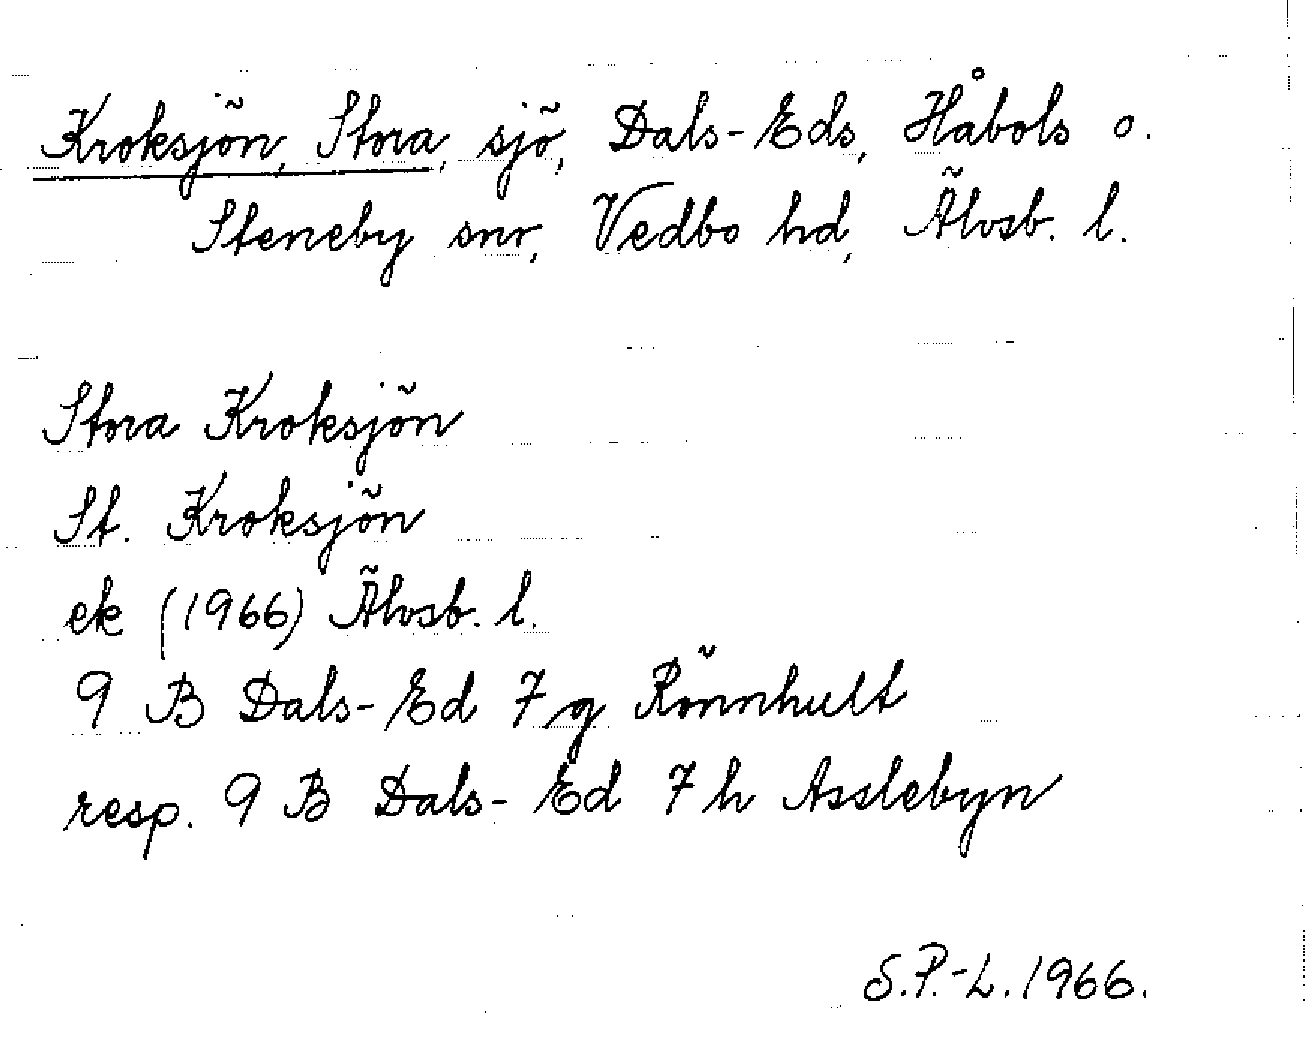 Kroksjön, Stora, sjö, Dals-Eds, Håbols o.
Steneby snr, Vedbo hd, Älvsb. l.
Stora Kroksjön
St. Kroksjön
ek (1966) Älvsb. l.
9 B Dals-Ed 7 g Rönnhult
resp. 9 B Dals-Ed 7 h Asslebyn
S.P.-L. 1966.